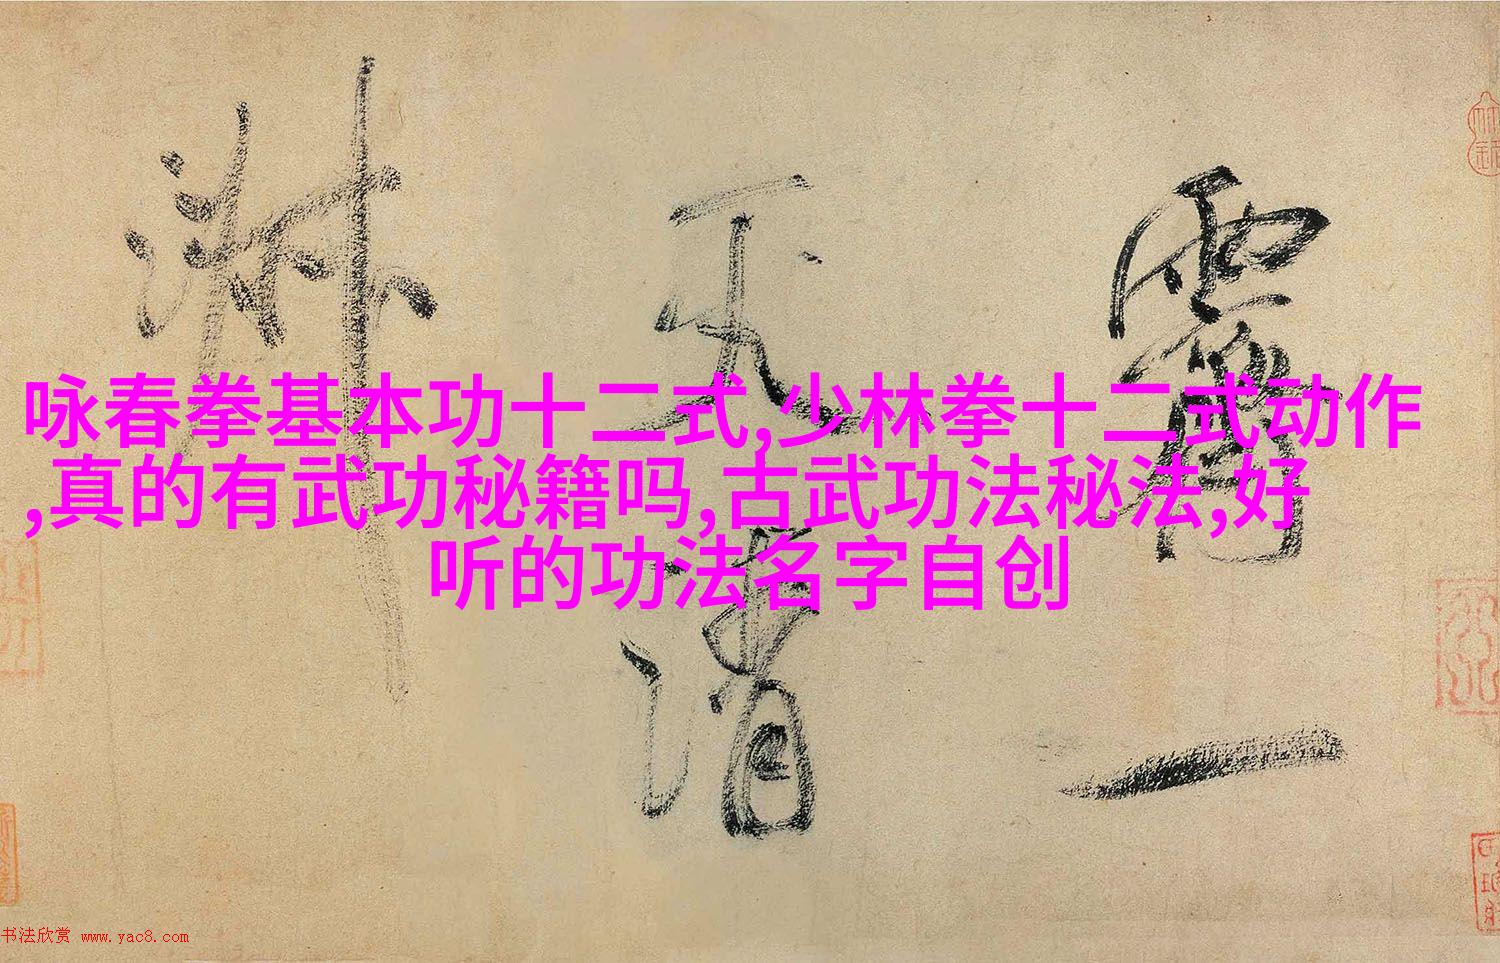 霽
一
天
清
淋
咏春拳基本功十二式,少林拳十二式动作
,真的有武功秘籍吗,古武功法秘法,好
听的功法名字自创
书法欣赏 www.yac8.com